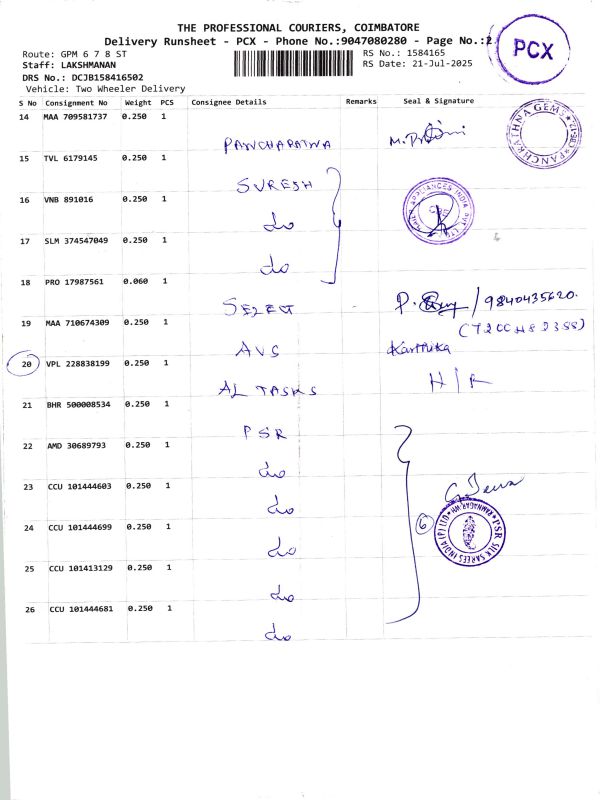 THE PROFESSIONAL COURIERS, COIMBATORE
Delivery Runsheet - PCX - Phone No.:9047080280 - Page No.:2
PCX
Route: GPM 6 7 8 ST
RS No.: 1584165
Staff: LAKSHMANAN
RS Date: 21-Jul-2025
DRS No.: DCJB158416502
Vehicle: Two Wheeler Delivery
S No Consignment No Weight PCS Consignee Details Remarks Seal & Signature
14 MAA 709581737 0.250 1
PANCHARATNA
PANCHRATHNA GEMS
15 TVL 6179145 0.250 1
SURESH
16 VNB 891016 0.250 1
do
APPLIANCES INDIA PVT. LTD.
17 SLM 374547049 0.250 1
do
18 PRO 17987561 0.060 1
SELECT P. /9840435620.
19 MAA 710674309 0.250 1
AVS Karthika
20 VPL 228838199 0.250 1
AL TASKS H/R
21 BHR 500008534 0.250 1
PSR
22 AMD 30689793 0.250 1
do
23 CCU 101444603 0.250 1
do
24 CCU 101444699 0.250 1
do
6
PSR SILK SAREES INDIA (P) LTD
25 CCU 101413129 0.250 1
do
26 CCU 101444681 0.250 1
do